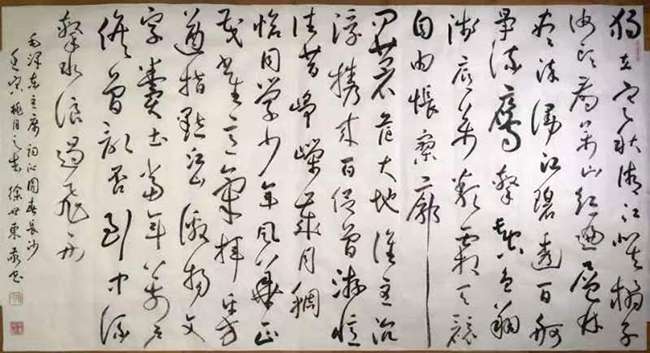 独立寒秋湘江北去橘子
洲头看万山红遍层林
尽染漫江碧透百舸
争流鹰击长空鱼翔
浅底万类霜天竞
自由怅寥廓
问苍茫大地谁主沉
浮携来百侣曾游忆
往昔峥嵘岁月稠
恰同学少年风华正
茂书生意气挥斥方
遒指点江山激扬文
字粪土当年万户
侯曾记否到中流
击水浪遏飞舟
毛泽东主席词沁园春长沙
桃月之 徐世东